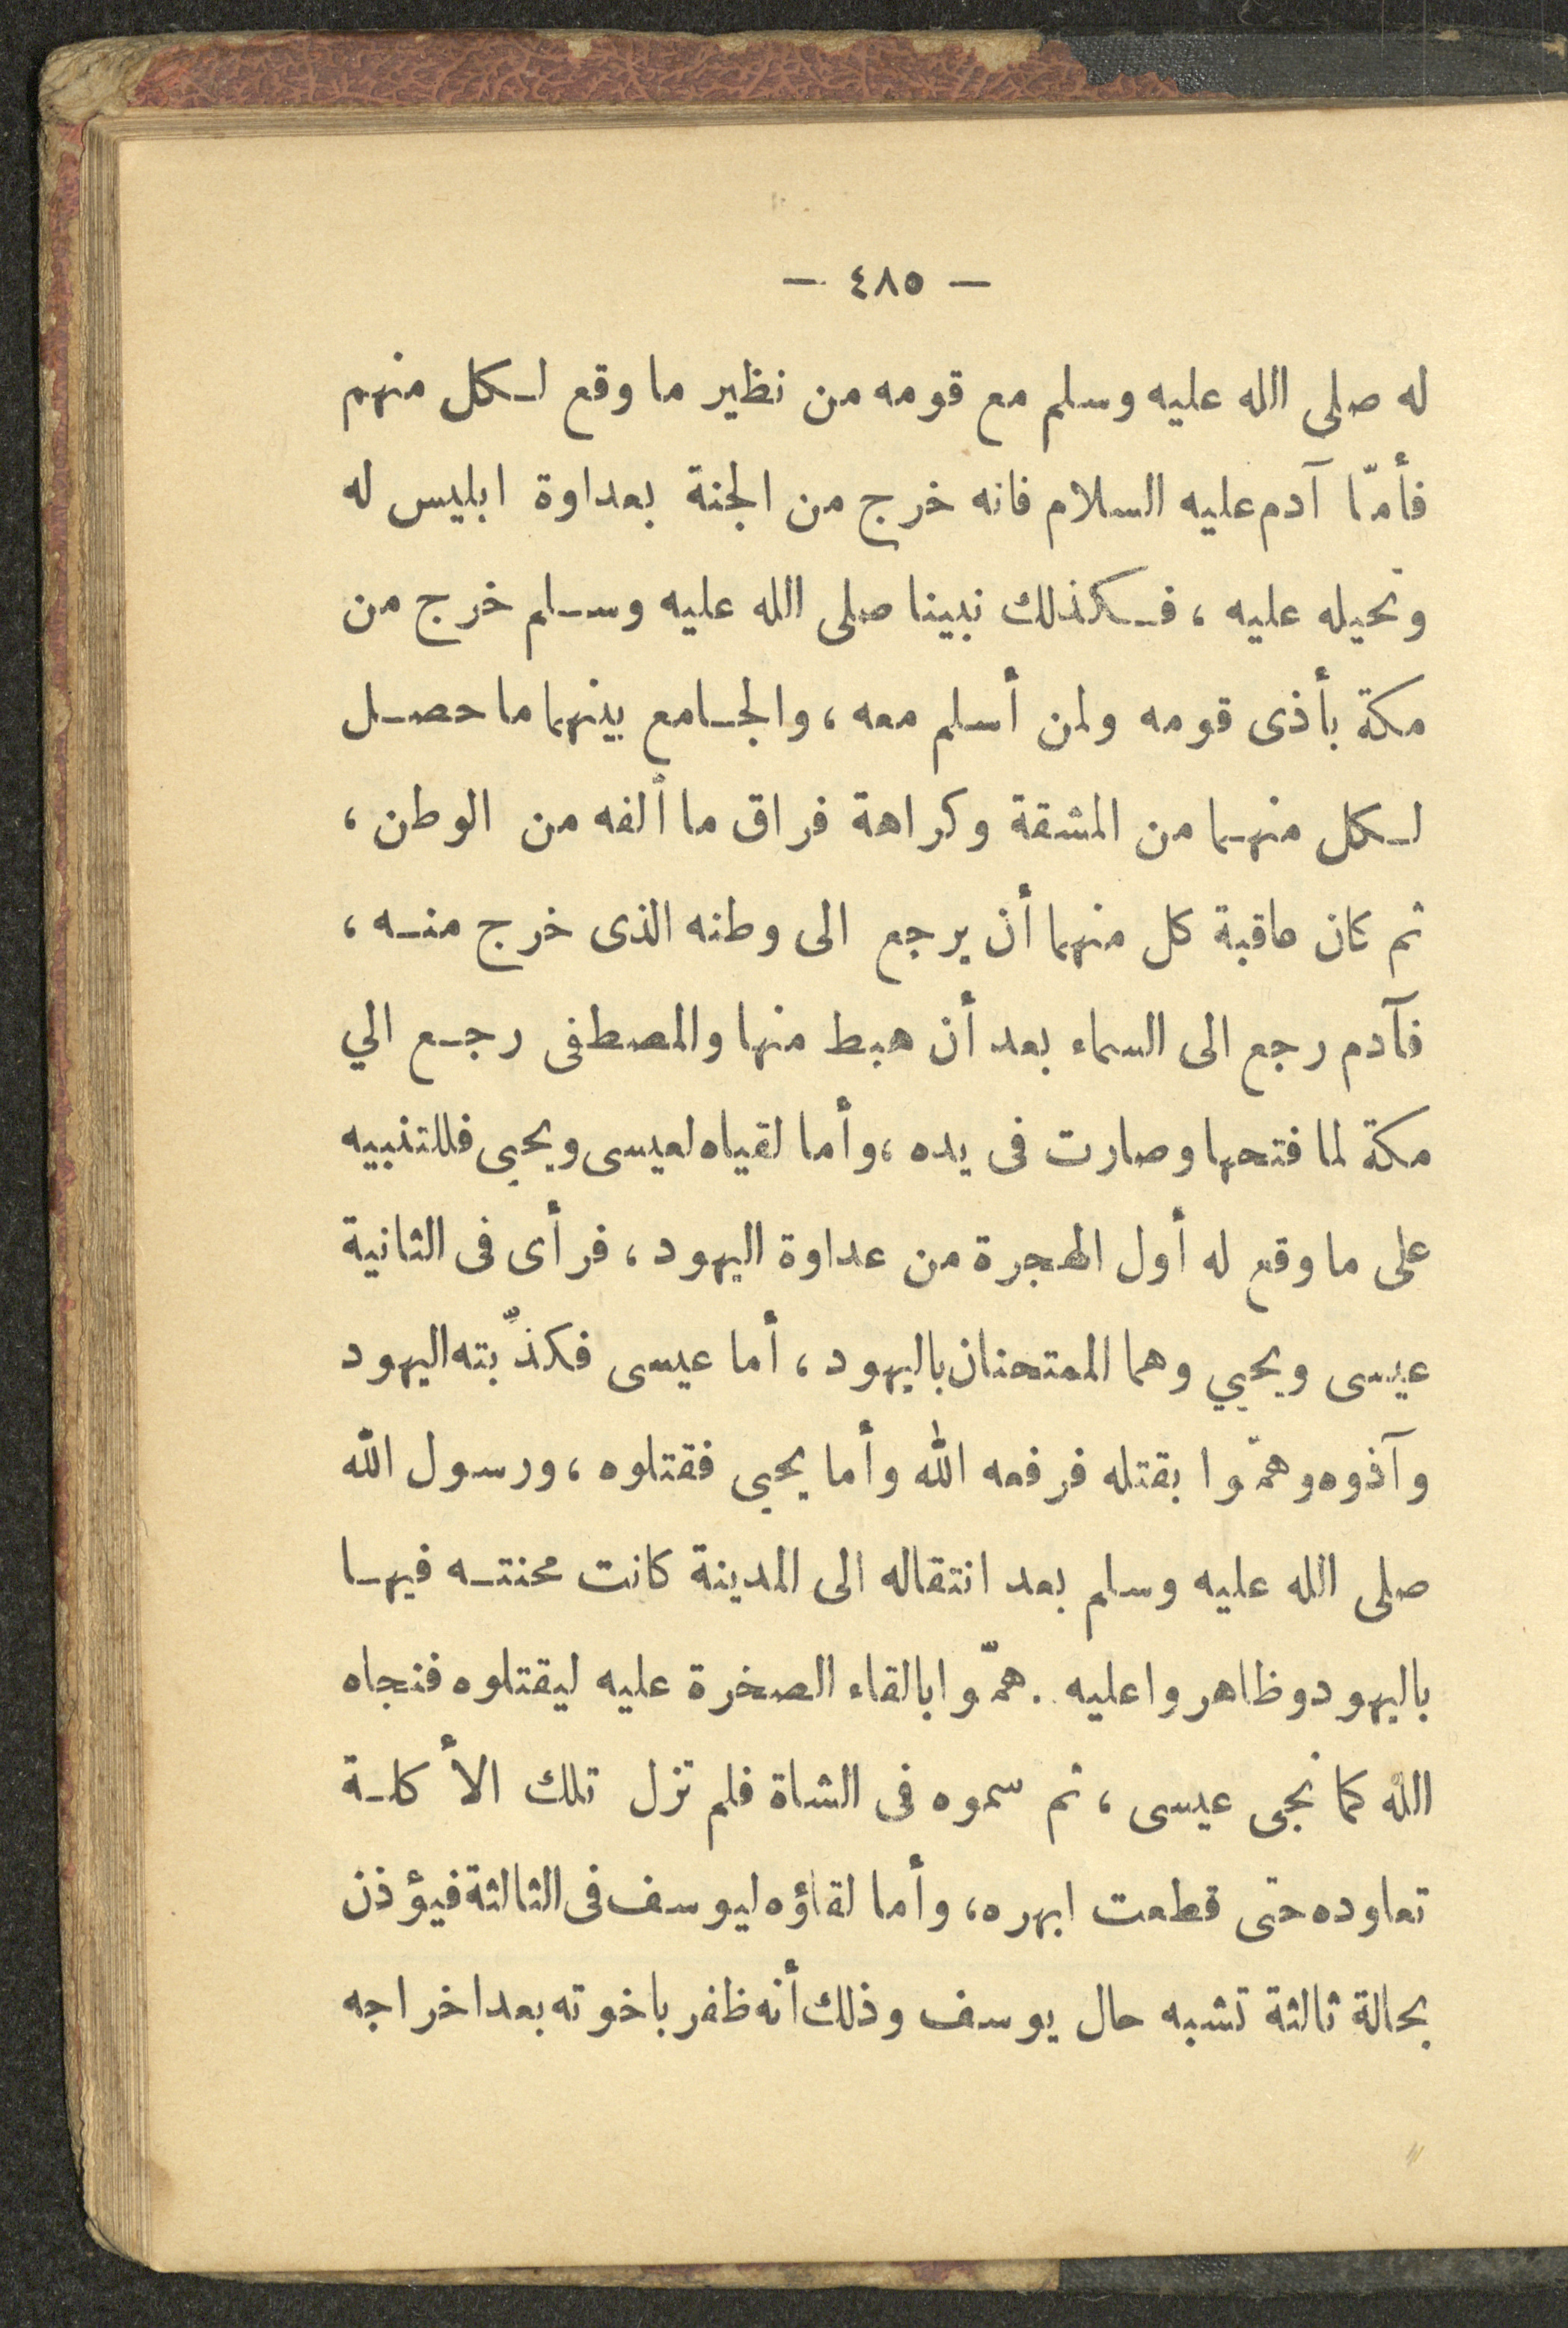 — ٤٨٥ —
له صلى الله عليه وسلم مع قومه من نظير ما وقع لكل منهم
فأمّا آدم عليه السلام فانه خرج من الجنة بعداوة ابليس له
وتحيله عليه ، فكذلك نبينا صلى الله عليه وسلم خرج من
مكة بأذى قومه ولمن أسلم معه ، والجامع بينهما ما حصل
لكل منهما من المشقة وكراهة فراق ما ألفه من الوطن ،
ثم كان عاقبة كل منهما أن يرجع الى وطنه الذى خرج منه ،
فآدم رجع الى السماء بعد أن هبط منها والمصطفى رجع الي
مكة لما فتحها وصارت فى يده ، وأما لقياه لعيسى ويحيى فللتنبيه
على ما وقع له أول الهجرة من عداوة اليهود ، فرأى فى الثانية
عيسى ويحيي وهما الممتحنان باليهود ، أما عيسى فكذّبته اليهود
وآذوه وهمّوا بقتله فرفعه الله وأما يحيى فقتلوه ، ورسول الله
صلى الله عليه وسلم بعد انتقاله الى المدينة كانت محنته فيها
باليهود وظاهروا عليه . همّوا بالقاء الصخرة عليه ليقتلوه فنجاه
الله كما نجى عيسى ، ثم سموه فى الشاة فلم تزل تلك الأكلة
تعاوده حتى قطعت ابهره ، وأما لقاؤه ليوسف فى الثالثة فيؤذن
بحالة ثالثة تشبه حال يوسف وذلك أنه ظفر باخوته بعد اخراجه